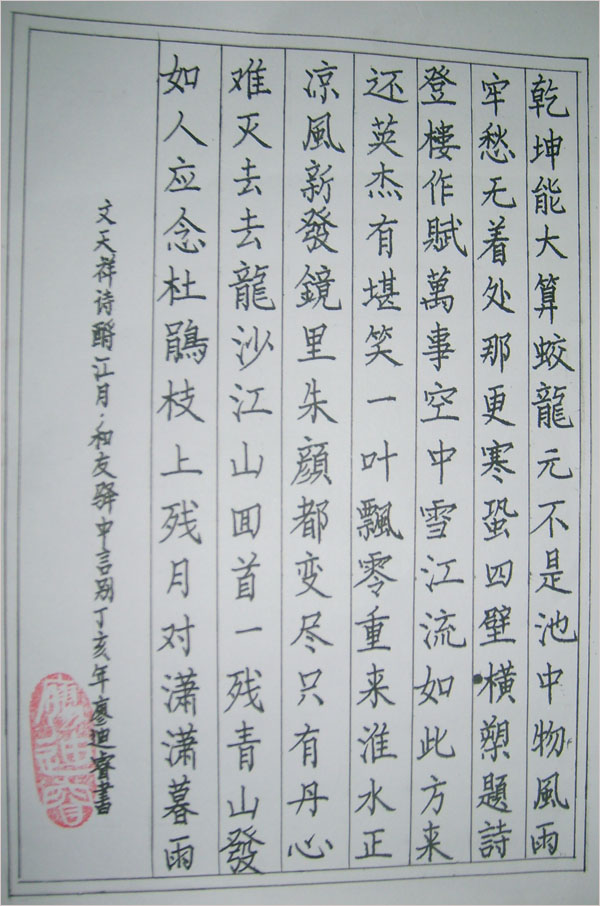 乾坤能大算蛟龍元不是池中物風雨
牢愁无着处那更寒蛩四壁横槊題詩
登樓作賦萬事空中雪江流如此方来
还英杰有堪笑一叶飄零重来淮水正
凉風新發鏡里朱顔都变尽只有丹心
难灭去去龍沙江山囬首一残青山發
如人应念杜鵑枝上残月对潇潇暮雨
文天祥诗酹江月·和友驿中言别丁亥年廖迪睿書